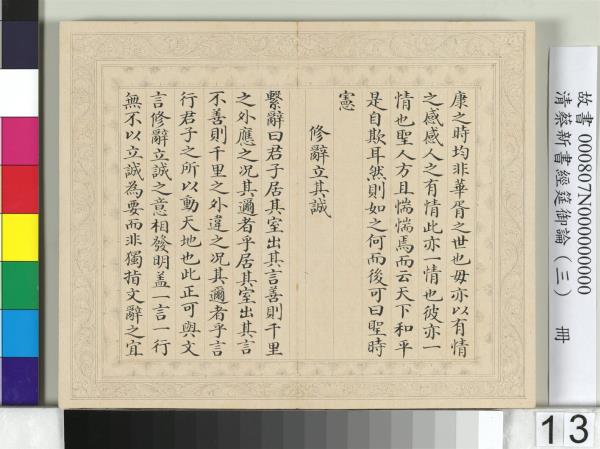 康之時均非華胥之世也毋亦以有情
之感感人之有情此亦一情也彼亦一
情也聖人方且惴惴焉而云天下和平
是自欺耳然則如之何而後可曰聖時
憲
修辭立其誠
繫辭曰君子居其室出其言善則千里
之外應之况其邇者乎居其室出其言
不善則千里之外違之况其邇者乎言
行君子之所以動天地也此正可與文
言修辭立誠之意相發明盖一言一行
無不以立誠為要而非獨指文辭之宜
故書 000807N000000000
清蔡新書經筵御論（三） 冊
13